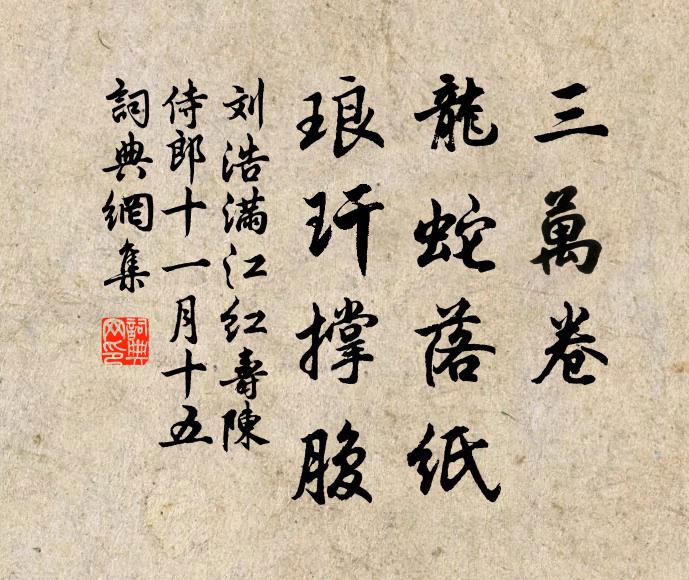 三萬卷
龍蛇落紙
琅玕撐腹
刘浩滿江红壽陳
侍郎十一月十五
詞典網集
詞典
网印